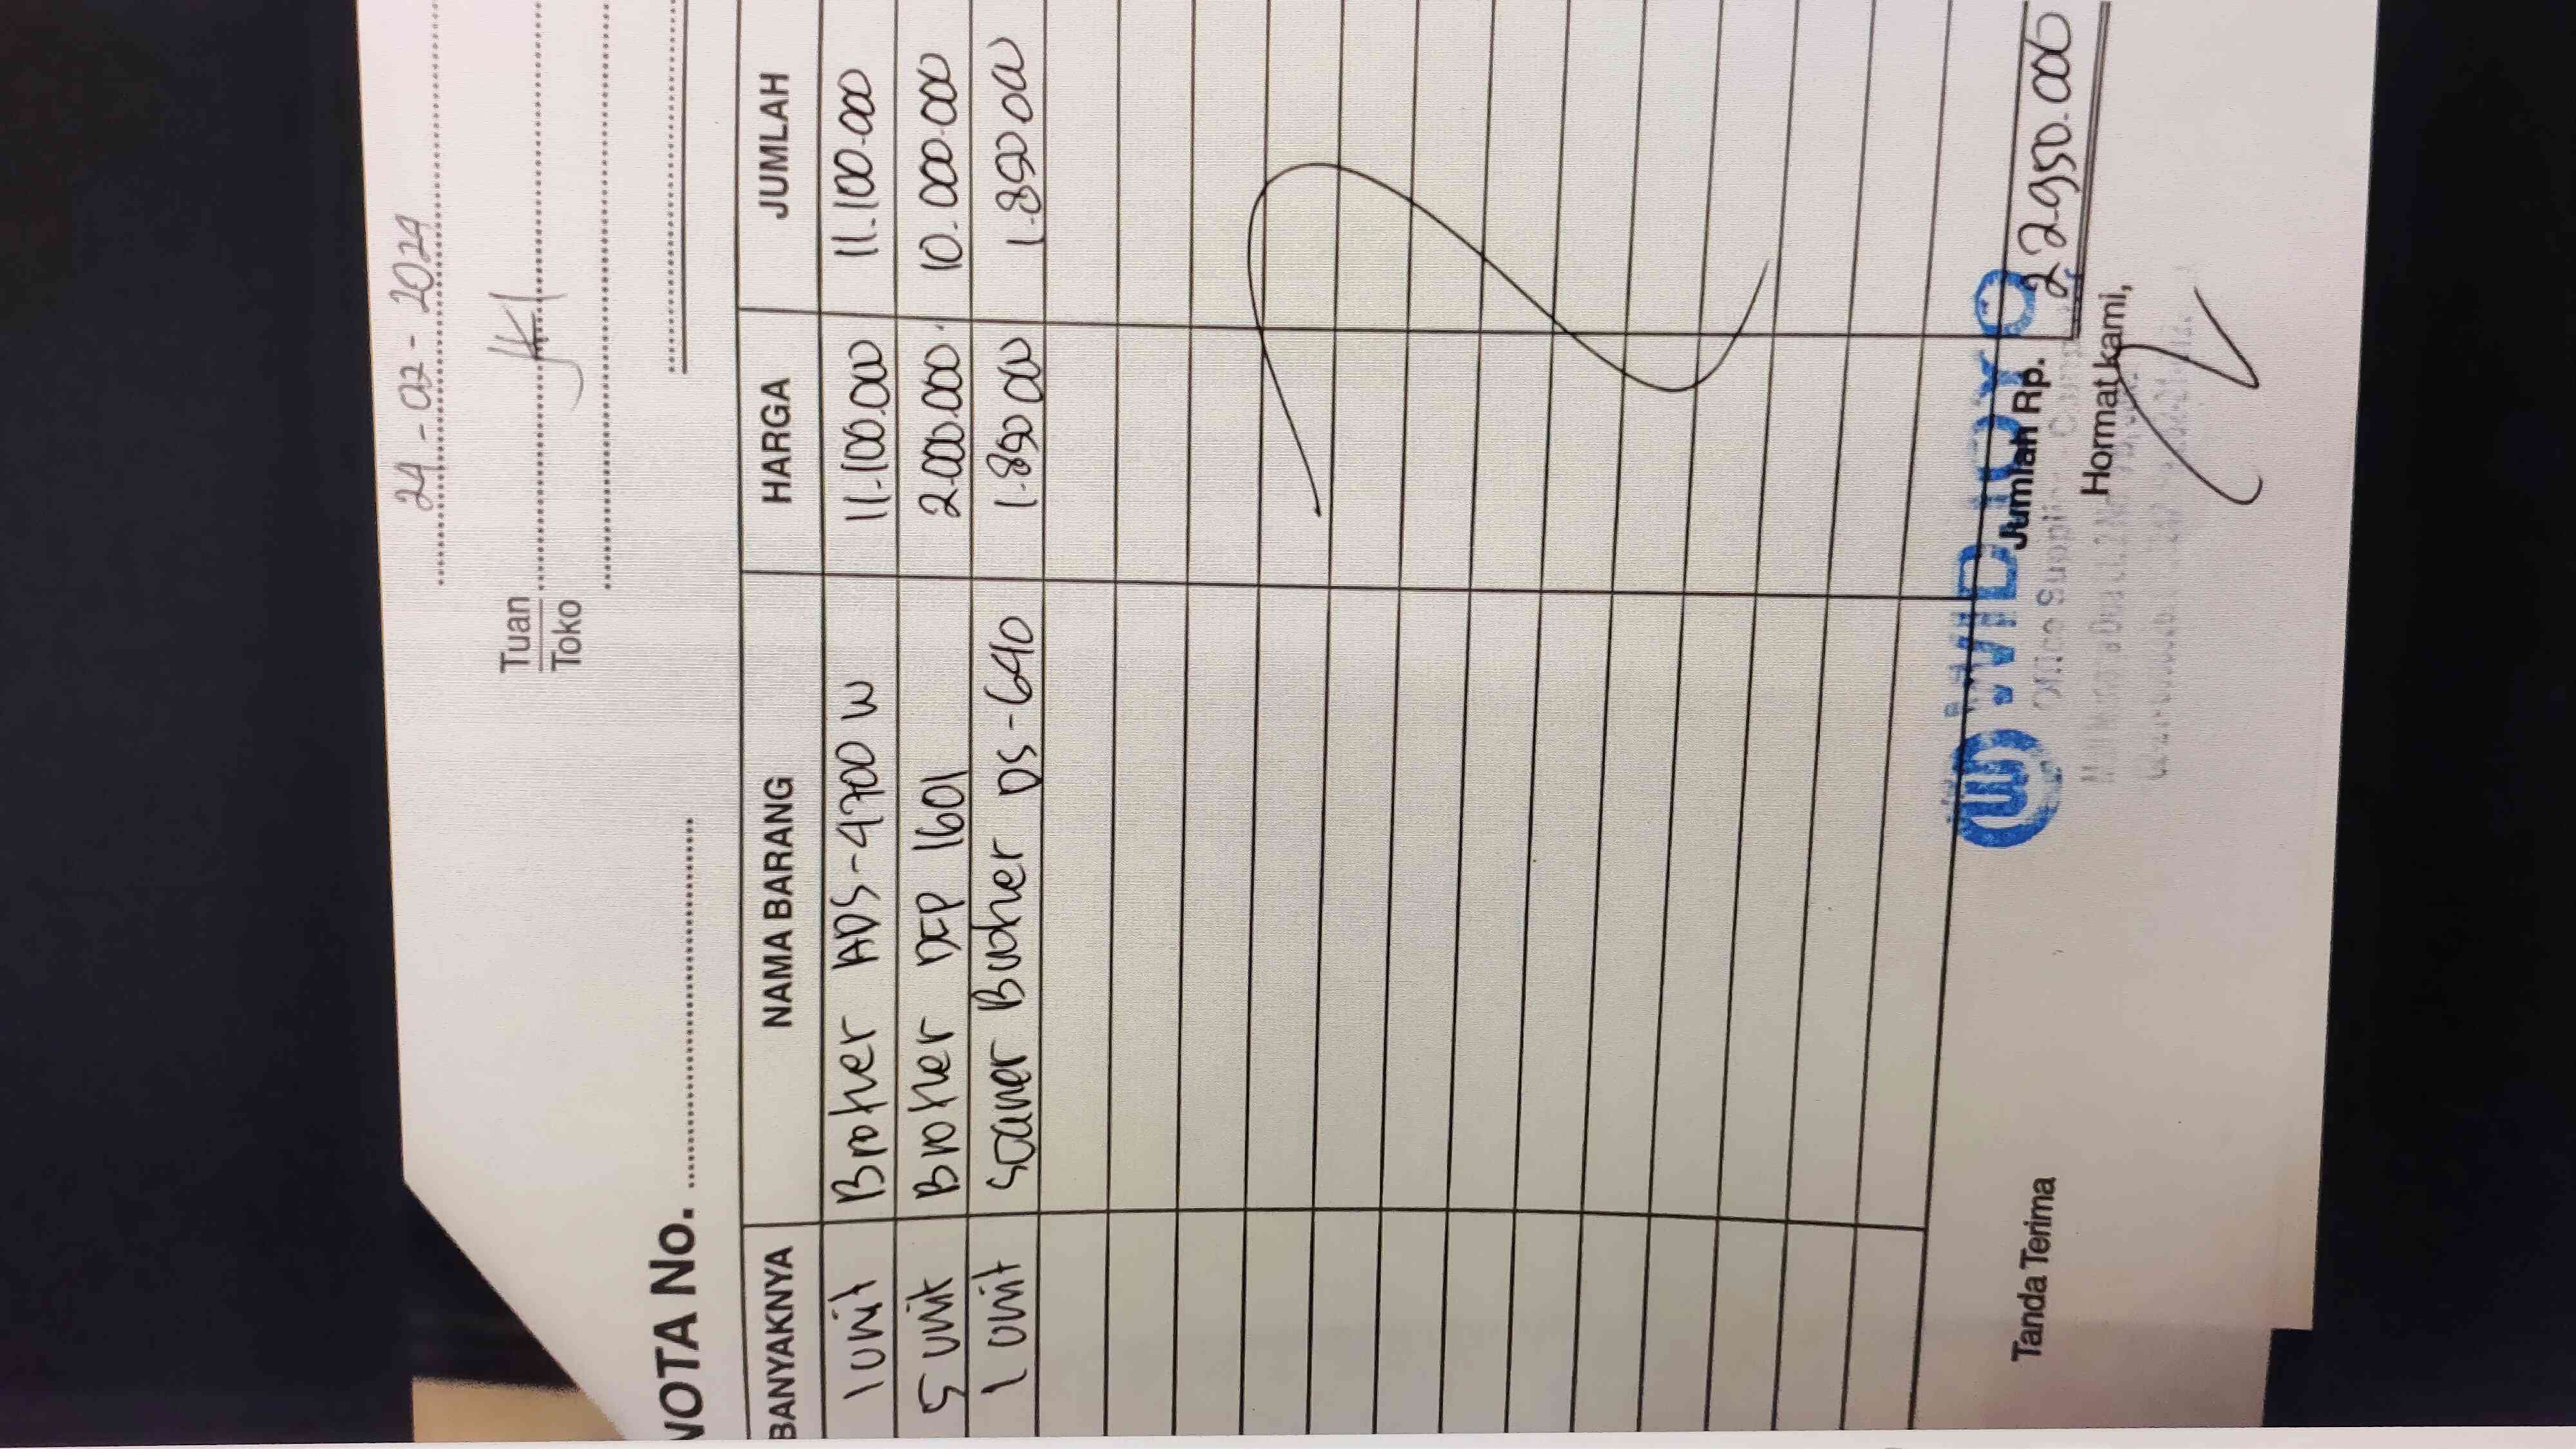 24-02-2024
Tuan
Toko
NOTA No.
BANYAKNYA NAMA BARANG HARGA JUMLAH
1 unit Brother ADS-4700 W 11.100.000 11.100.000
5 unit Brother DCP 1601 2.000.000 10.000.000
1 unit Scaner Brother DS-640 1.850.000 1.850.000
Jumlah Rp. 22.950.000
Tanda Terima Hormat kami,